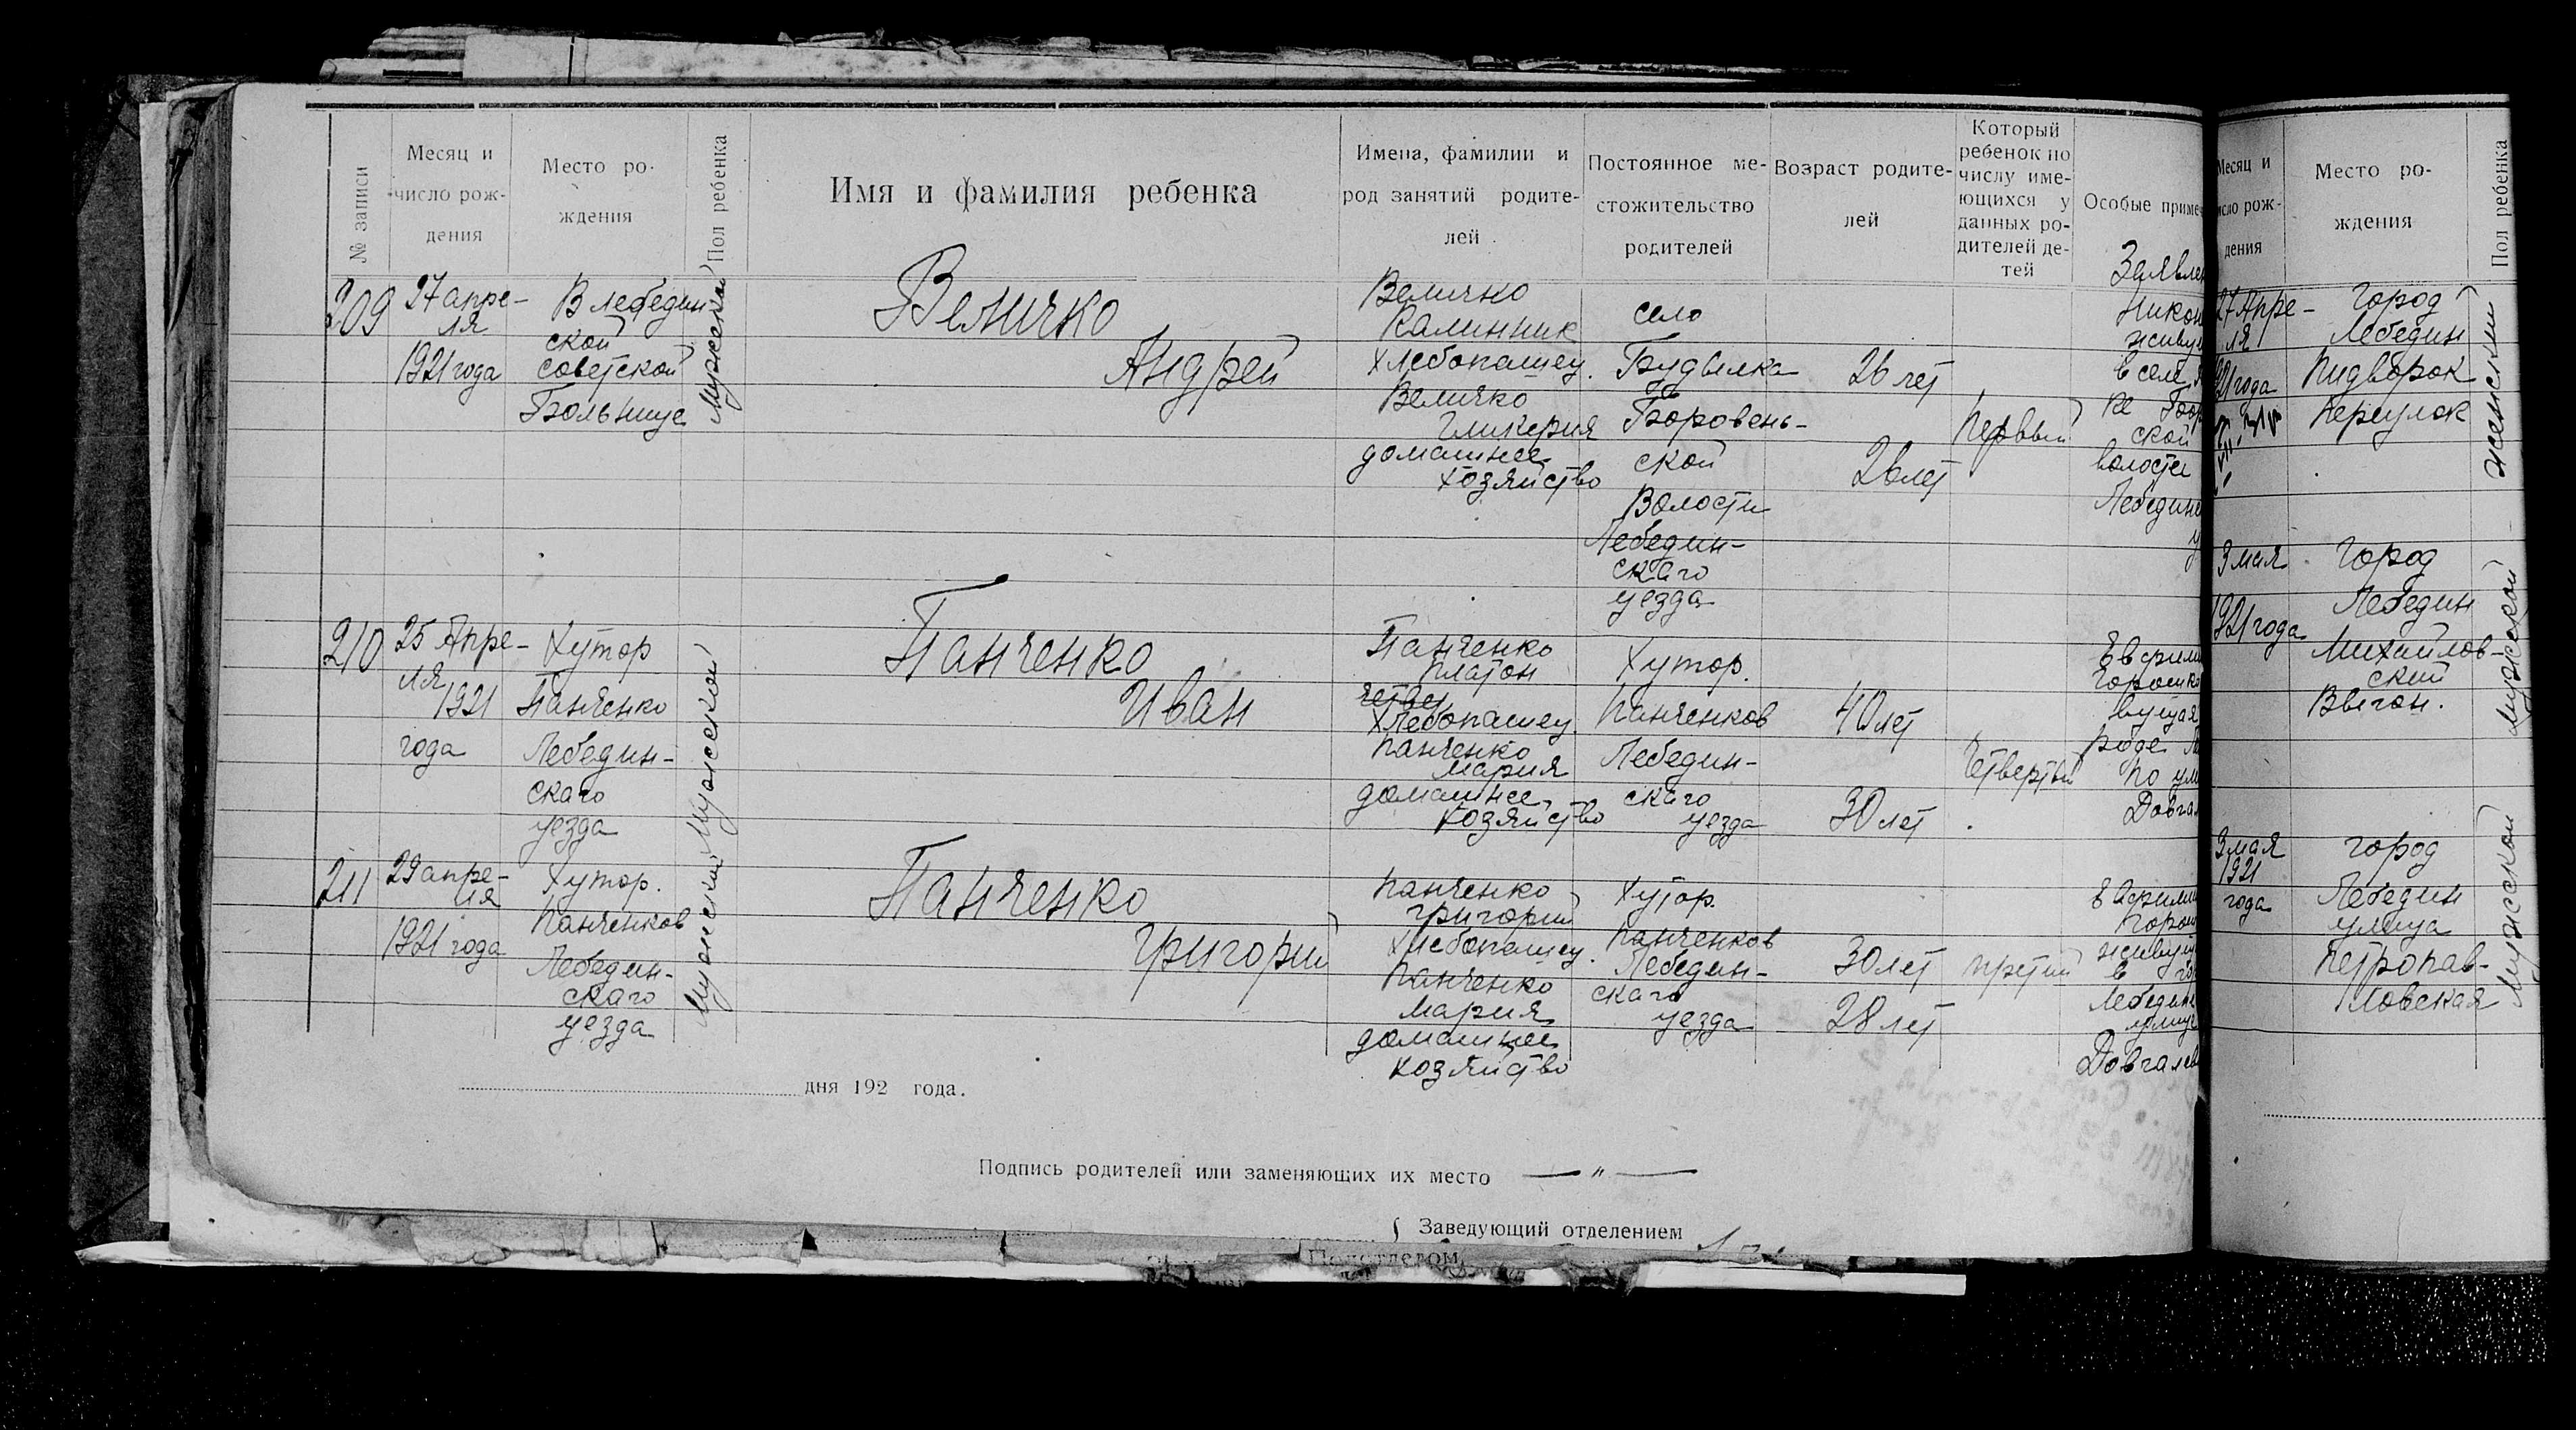 № записи
Месяц и
число рож-
дения
Место ро-
ждения
Пол ребенка
Имя и фамилия ребенка
Имена, фамилии и
род занятий родите-
лей
Постоянное ме-
стожительство
родителей
Возраст родите-
лей
Который
ребенок по
числу име-
ющихся у
данных ро-
дителей де-
тей
Особые приме
209
27 апре-
ля
1921 года
В лебедин
ской
советской
Больнице
Мужской
Величко
Андрей
Величко
Калинник
хлебопашец.
Величко
Гликерия
домашнее
хозяйство
село
Будылка
Боровень-
ской
Волости
Лебедин-
скаго
уезда
26 лет
26 лет
Первый
Заявлен
Никон
живущ
в селе
ке Бор
ской
волости
Лебединс
у
210
25 Апре-
ля
1921
года
Хутор
Панченко
Лебедин-
скаго
уезда
Мужской
Панченко
Иван
Панченко
Платон
Хлебопашец.
Панченко
Мария
домашнее
хозяйство
Хутор.
Панченков
Лебедин-
скаго
уезда
40 лет
30 лет
Четвертый
Ефрими
Горошко
вущая
роде Л
по ули
Довгал
211
29 апре-
ля
1921 года
Хутор.
Панченков
Лебедин-
скаго
уезда
Мужской
Панченко
Григорий
Панченко
Григорий
Хлебопашец.
Панченко
Мария
домашнее
хозяйство
Хутор.
Панченков
Лебедин-
скаго
уезда
30 лет
28 лет
третий
Горош
живущ
в го
Лебедине
улице
Довгалев
дня 192 года.
Подпись родителей или заменяющих их место — " —
Заведующий отделением
Подотделом
Месяц и
исло рож-
дения
Место ро-
ждения
Пол ребенка
27 Апре-
ля
21 года
Город
Лебедин
Пидворок
Переулок
женский
3 мая
1921 года
Город
Лебедин
Михайлов-
ский
Выгон.
мужской
3 мая
1921
года
город
Лебедин
улица
Петропав-
ловская
Мужской